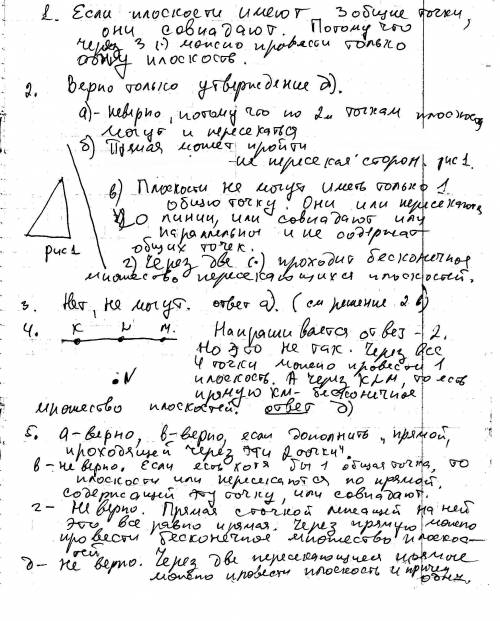 1. Если плоскости имеют 3 общие точки,
они совпадают. Потому что
через 3 (·) можно провести только
одну плоскость.
2. Верно только утверждение д).
а)- неверно, потому что по 2м точкам плоскос
могут и пересекаться
б) Прямая может пройти
не пересекая сторон. рис 1.
в) Плоскости не могут иметь только 1
общую точку. Они или пересекаются
по линии, или совпадают или
параллельны и не содержат
рис 1
общих точек.
г) Через две (·) проходит бесконечное
множество пересекающихся плоскостей.
3. Нет, не могут. ответ а). (см решение 2 в)
4. K L M.
Напрашивается ответ - 2.
Но это не так. Через все
4 точки можно провести 1
N
плоскость. А через KLM, то есть
прямую KM- бесконечное
множество плоскостей. ответ д)
5. а-верно, в-верно, если дополнить „прямой,
проходящей через эти 2 точки".
в- не верно. Если есть хотя бы 1 общая точка, то
плоскости или пересекаются по прямой,
содержащей эту точку, или совпадают.
г- Не верно. Прямая с точкой лежащей на ней
это все равно прямая. Через прямую можно
провести бесконечное множество плоскос-
тей.
д- Не верно. Через две пересекающиеся прямые
можно провести плоскость и притом
одну.